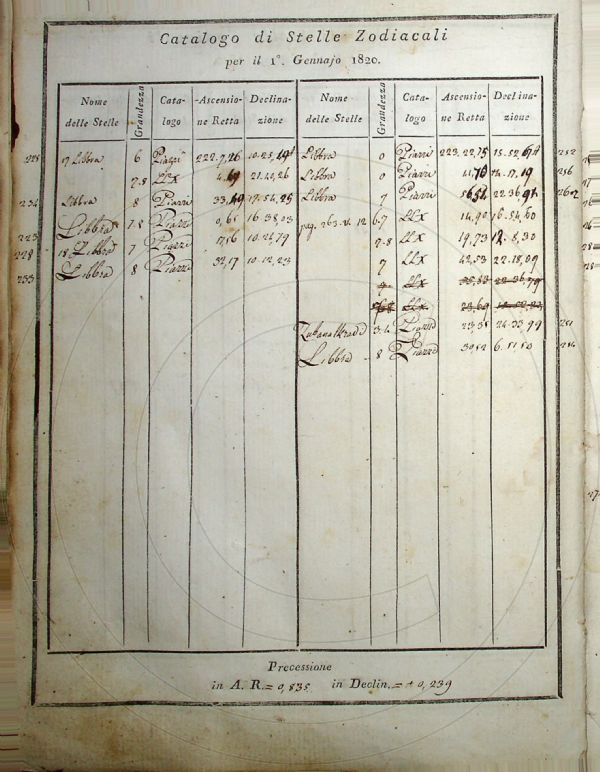 Catalogo di Stelle Zodiacali
per il 1º. Gennajo 1820.
Nome delle Stelle
Grandezza
Catalogo
Ascensione Retta
Declinazione
Nome delle Stelle
Grandezza
Catalogo
Ascensione Retta
Declinazione
17 Libbra 6 Piazzi 222.7,26 10.25,
7.8 LLX 21.40,26
234 Libbra 8 Piazzi 33, 17.54,25
223 Libbra 7.8 Piazzi 0,65 16.38,03
228 18 Libbra 7 Piazzi 17,56 10.24,79
233 Libbra 8 Piazzi 32,17 10.12,23
Libbra 0 Piazzi 223.22,75 15.52, 252
Libbra 0 Piazzi 41,70 14.17,19 256
Libbra 7 Piazzi 56,52 22.36,91 262
pag. 263. v. 12 6.7 LLX 14,90 16.54,60
7.8 LLX 19,73 12.8,30
7 LLX 42,53 22.18,09
LLX
LLX 23,69
3.4 Piazzi 23,35 24.33,99 251
Libbra 8 Piazzi 39,52 6.51,50
Precessione
in A. R. = 0,835 in Declin. = + 0,239